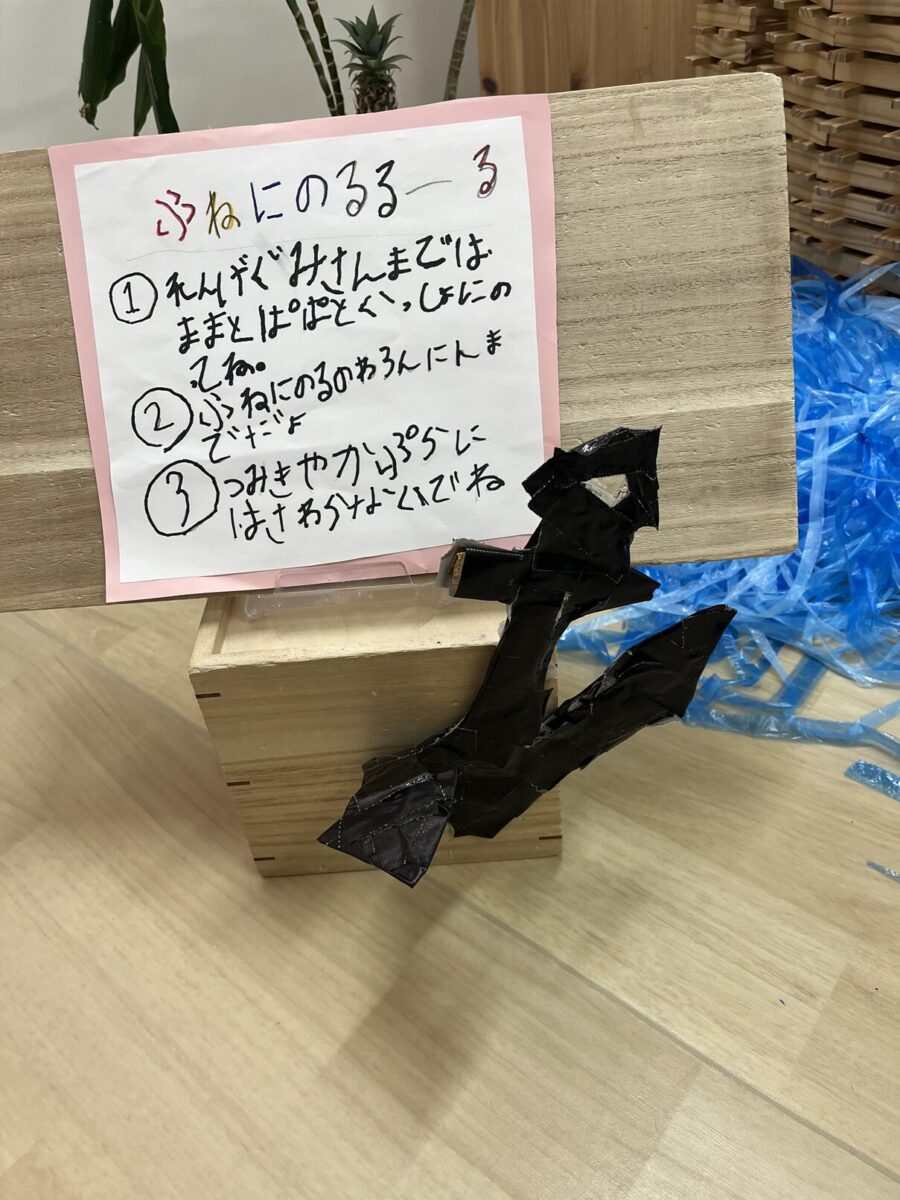 ふねにのるるーる
① れんげぐみさんまでは
ままとぱぱといっしょにの
ってね。
② ふねにのるのわろんにんま
でだよ
③ つみきやかぷらに
はさわらないでね